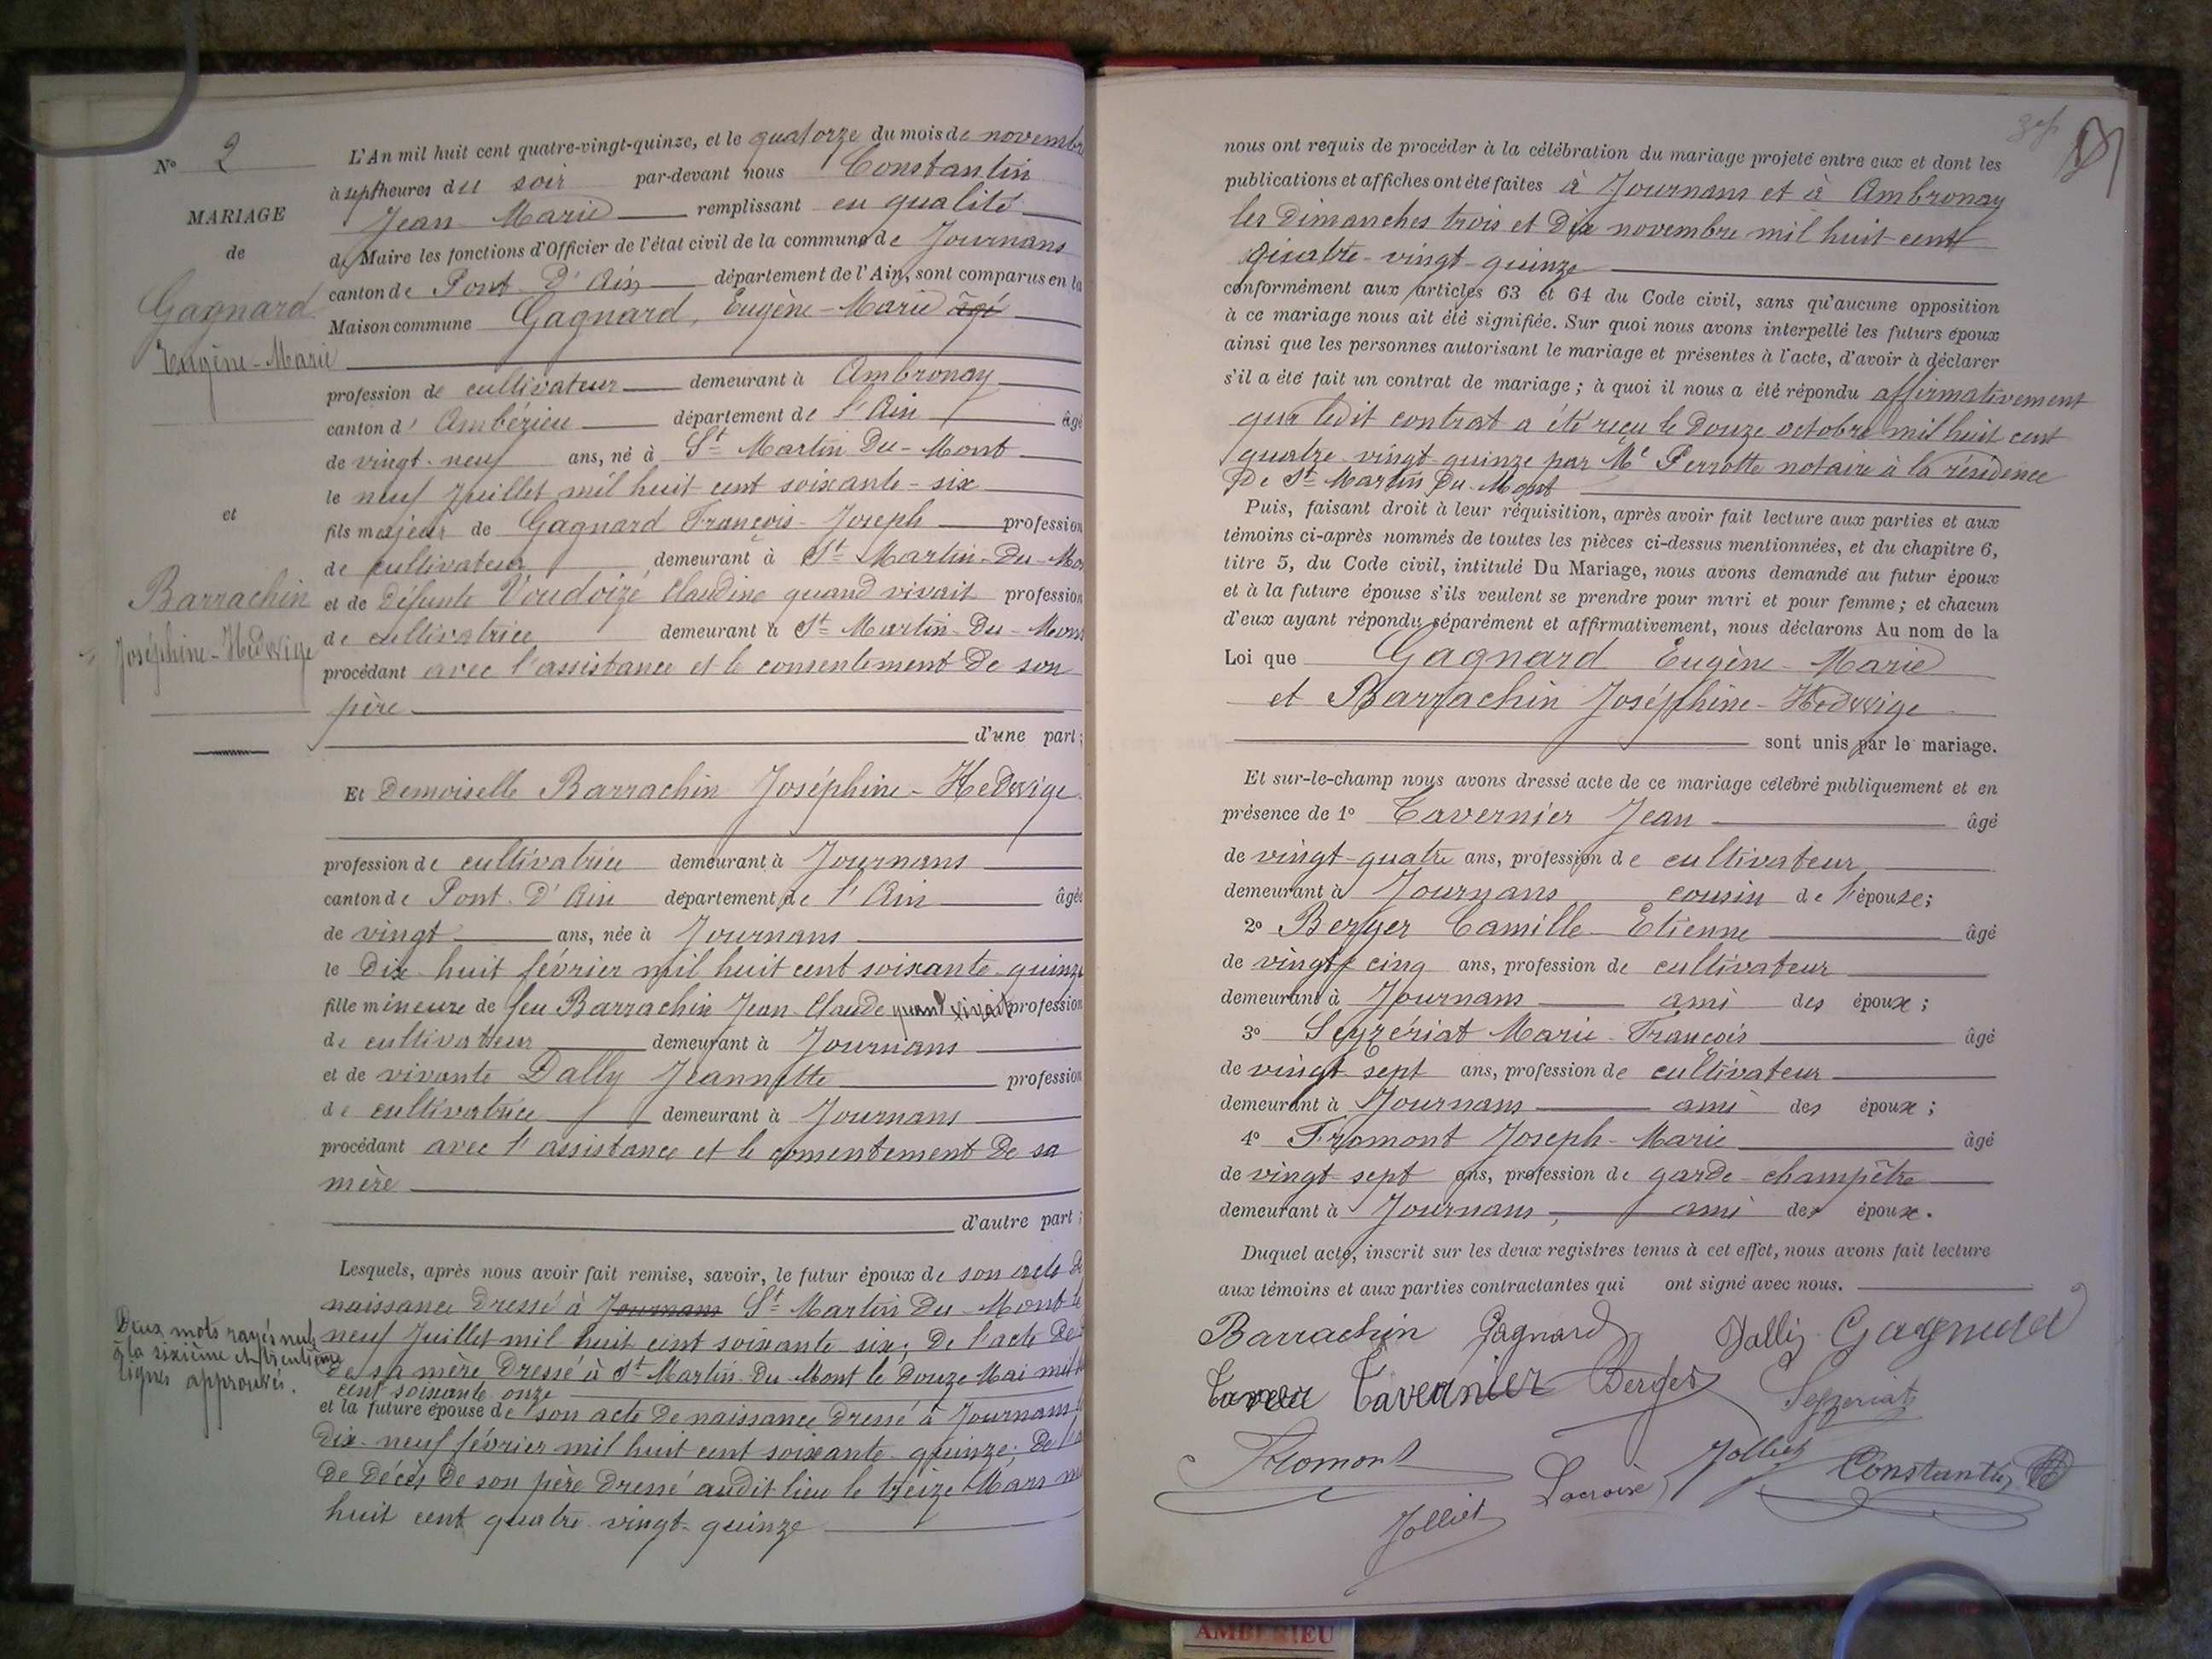 N° 2
MARIAGE
de
Gagnard
Eugène-Marie
et
Barrachin
Joséphine-Hedwige
L'An mil huit cent quatre-vingt-quinze, et le quatorze du mois de novembre
à sept heures du soir par-devant nous Constantin
Jean Marie remplissant en qualité
de Maire les fonctions d'Officier de l'état civil de la commune de Journans
canton de Pont d'Ain département de l'Ain, sont comparus en la
Maison commune Gagnard, Eugène-Marie âgé
profession de cultivateur demeurant à Ambronay
canton d' Ambérieu département de l'Ain âgé
de vingt-neuf ans, né à St Martin Du-Mont
le neuf Juillet mil huit cent soixante-six
fils majeur de Gagnard François-Joseph profession
de cultivateur demeurant à St Martin-Du-Mo
et de défunte Voudoize Claudine quand vivait profession
de cultivatrice demeurant à St Martin-Du-Mont
procédant avec l'assistance et le consentement de son
père
d'une part;
Et Demoiselle Barrachin Joséphine-Hedwige
profession de cultivatrice demeurant à Journans
canton de Pont-D'Ain département de l'Ain âgée
de vingt ans, née à Journans
le Dix-huit février mil huit cent soixante-quinze
fille mineure de feu Barrachin Jean-Claude quand vivait profession
de cultivateur demeurant à Journans
et de vivante Dally Jeannette profession
de cultivatrice demeurant à Journans
procédant avec l'assistance et le consentement de sa
mère
d'autre part;
Lesquels, après nous avoir fait remise, savoir, le futur époux de son acte de
naissance dressé à Journans St Martin Du-Mont le
neuf Juillet mil huit cent soixante six; De l'acte De
De sa mère dressé à St Martin-Du-Mont le douze Mai mil
cent soixante onze
et la future épouse de son acte de naissance dressé à Journans
Dix-neuf février mil huit cent soixante-quinze; De l'a
De décès De son père Dressé audit lieu le treize Mars m
huit cent quatre-vingt-quinze
Deux mots rayés nuls
à la sixième et trentième
lignes approuvés.
nous ont requis de procéder à la célébration du mariage projeté entre eux et dont les
publications et affiches ont été faites à Journans et à Ambronay
les Dimanches trois et Dix novembre mil huit cent
quatre-vingt-quinze
conformément aux articles 63 et 64 du Code civil, sans qu'aucune opposition
à ce mariage nous ait été signifiée. Sur quoi nous avons interpellé les futurs époux
ainsi que les personnes autorisant le mariage et présentes à l'acte, d'avoir à déclarer
s'il a été fait un contrat de mariage; à quoi il nous a été répondu affirmativement
que ledit contrat a été reçu le Douze octobre mil huit cent
quatre-vingt-quinze par Me Perrotte notaire à la résidence
De St Martin Du-Mont
Puis, faisant droit à leur réquisition, après avoir fait lecture aux parties et aux
témoins ci-après nommés de toutes les pièces ci-dessus mentionnées, et du chapitre 6,
titre 5, du Code civil, intitulé Du Mariage, nous avons demandé au futur époux
et à la future épouse s'ils veulent se prendre pour mari et pour femme; et chacun
d'eux ayant répondu séparément et affirmativement, nous déclarons Au nom de la
Loi que Gagnard Eugène-Marie
et Barrachin Joséphine-Hedwige
sont unis par le mariage.
Et sur-le-champ nous avons dressé acte de ce mariage célébré publiquement et en
présence de 1° Tavernier Jean âgé
de vingt-quatre ans, profession de cultivateur
demeurant à Journans cousin de l'épouse;
2° Berger Camille-Etienne âgé
de vingt cinq ans, profession de cultivateur
demeurant à Journans ami des époux;
3° Seyzériat Marie-François âgé
de vingt sept ans, profession de cultivateur
demeurant à Journans ami des époux;
4° Fromont Joseph-Marie âgé
de vingt-sept ans, profession de garde-champêtre
demeurant à Journans, ami des époux.
Duquel acte, inscrit sur les deux registres tenus à cet effet, nous avons fait lecture
aux témoins et aux parties contractantes qui ont signé avec nous.
Barrachin Gagnard Dally Gagnard
Tavernier Berger Seyzeriat
Fromont Lacroix Jolliet Constantin
Jolliet
AMBERIEU